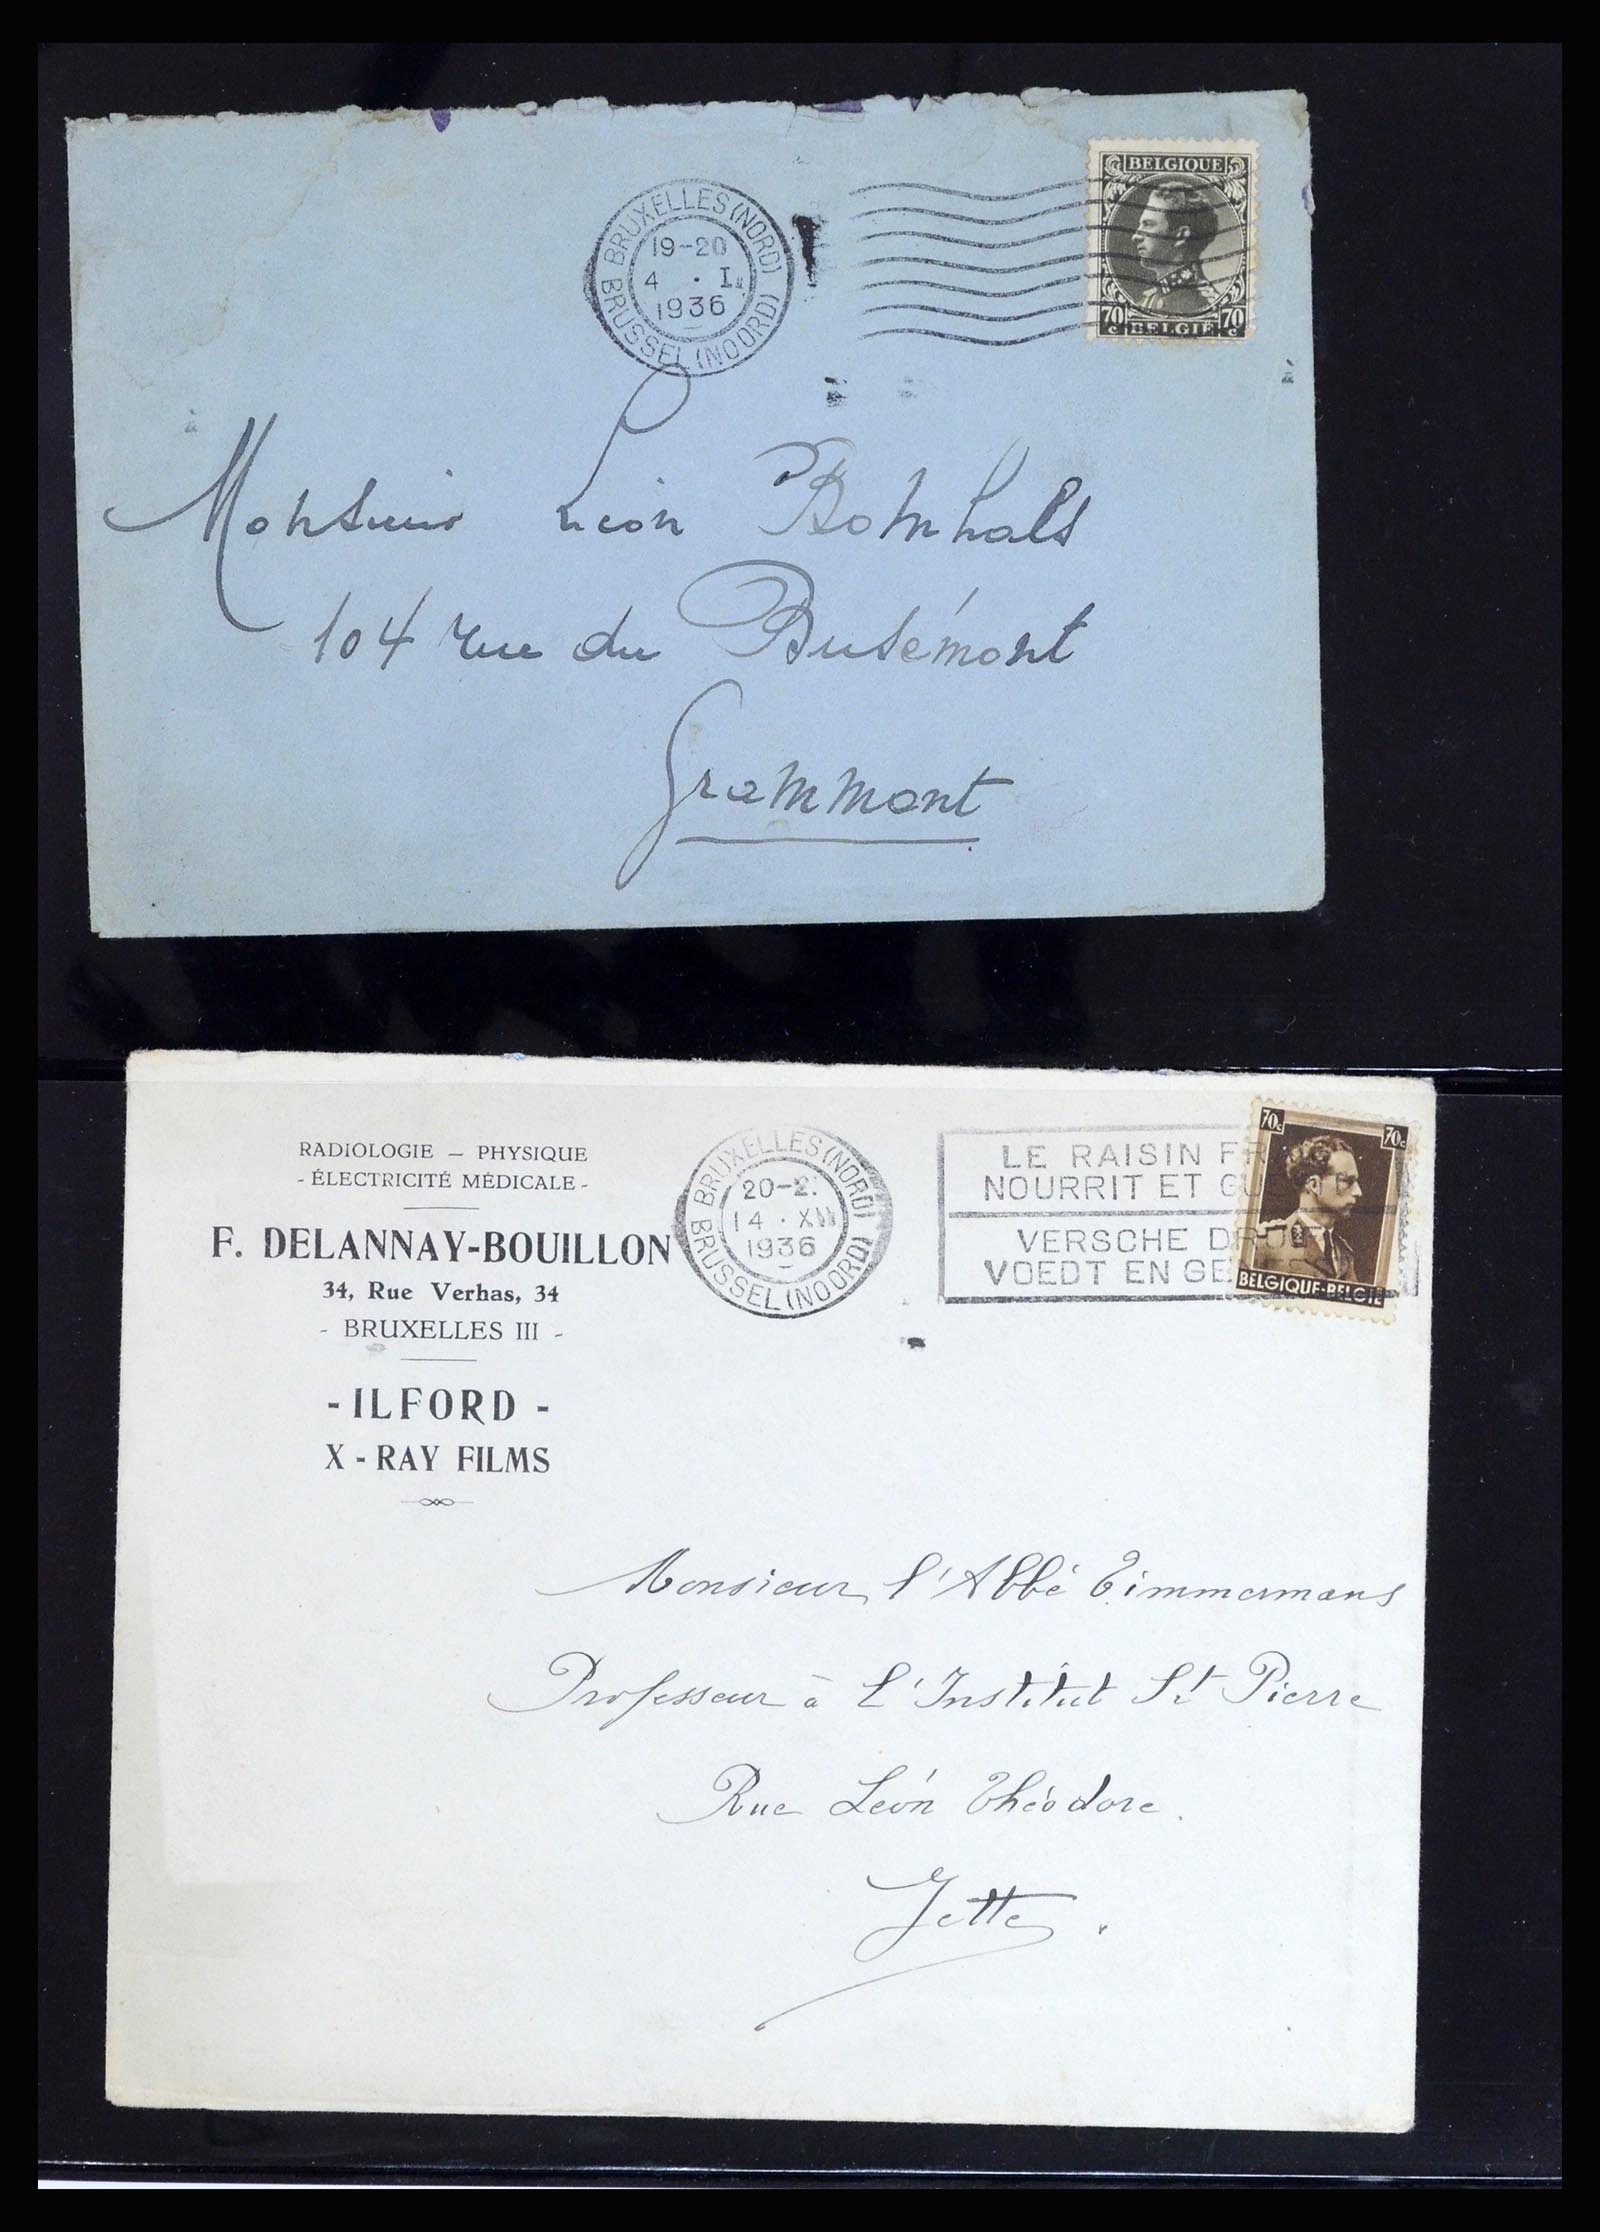 BRUXELLES (NORD)
19-20
4 . I
1936
BRUSSEL (NOORD)
BELGIQUE
70c 70c
BELGIË
Monsieur Léon Bomhals
104 rue du
Grammont
RADIOLOGIE – PHYSIQUE
- ÉLECTRICITÉ MÉDICALE -
F. DELANNAY-BOUILLON
34, Rue Verhas, 34
- BRUXELLES III -
- ILFORD -
X - RAY FILMS
BRUXELLES (NORD)
14 . XII
1936
BRUSSEL (NOORD)
LE RAISIN
NOURRIT ET
VERSCHE
VOEDT EN
70c 70c
BELGIQUE-BELGIË
Monsieur l'Abbé Timmermans
Professeur à l'Institut St Pierre
Rue Léon Théodore.
Jette.